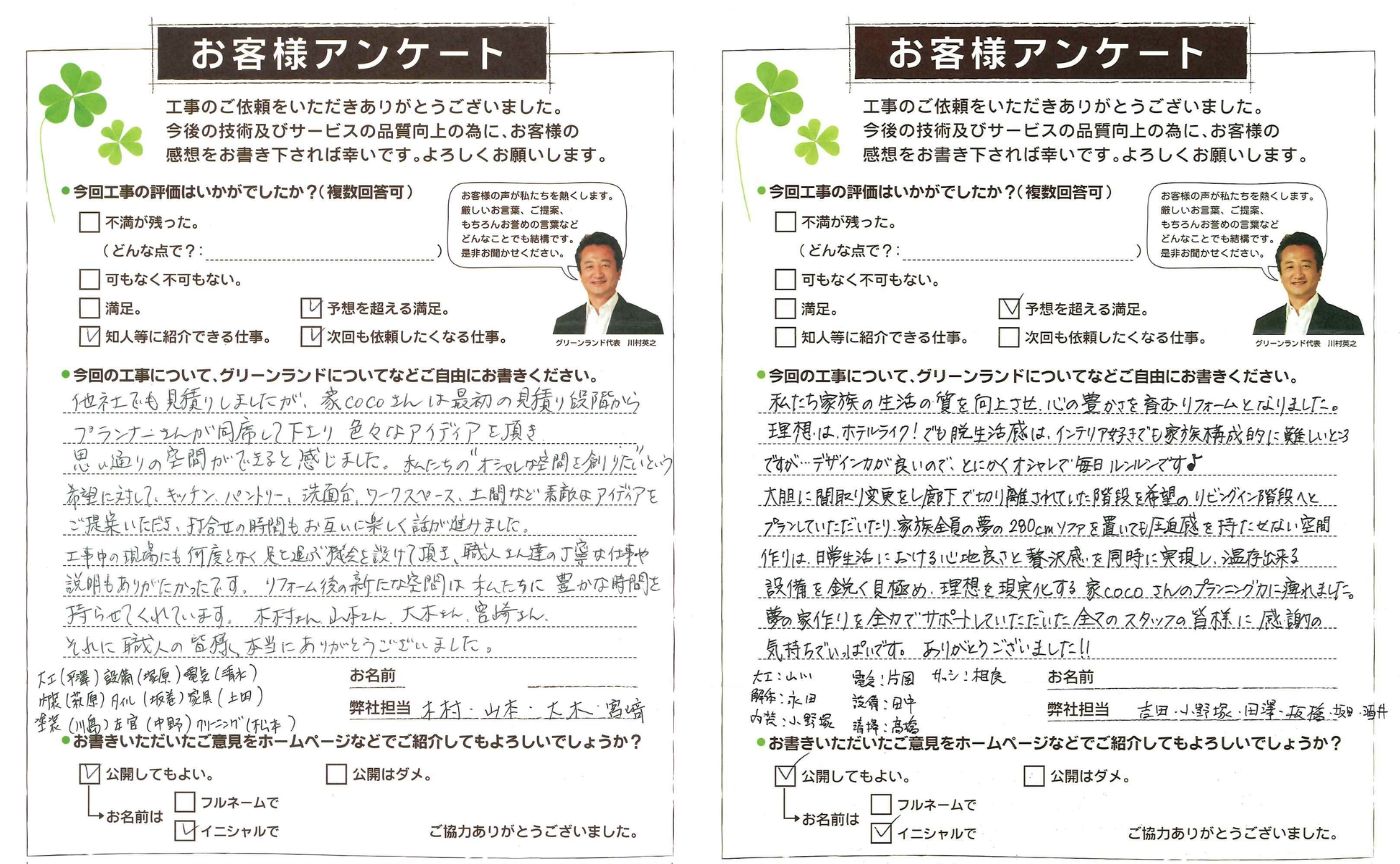 お客様アンケート
工事のご依頼をいただきありがとうございました。
今後の技術及びサービスの品質向上の為に、お客様の
感想をお書き下されば幸いです。よろしくお願いします。
●今回工事の評価はいかがでしたか?(複数回答可)
不満が残った。
(どんな点で?: )
可もなく不可もない。
満足。
予想を超える満足。
知人等に紹介できる仕事。
次回も依頼したくなる仕事。
お客様の声が私たちを熱くします。
厳しいお言葉、ご提案、
もちろんお誉めの言葉など
どんなことでも結構です。
是非お聞かせください。
グリーンランド代表 川村英之
●今回の工事について、グリーンランドについてなどご自由にお書きください。
他社でも見積りしましたが、家cocoさんは最初の見積り段階から
プランナーさんが同席して下さり 色々なアイディアを頂き
思い通りの空間ができると感じました。私たちの"オシャレな空間を創りたい"という
希望に対して、キッチン、パントリー、洗面台、ワークスペース、土間など素敵なアイディアを
ご提案いただき、打合せの時間もお互いに楽しく話が進みました。
工事中の現場にも何度となく足を運ぶ機会を設けて頂き、職人さん達の丁寧な仕事や
説明もありがたかったです。リフォーム後の新たな空間は私たちに豊かな時間を
持らせてくれています。木村さん、山本さん、大木さん、宮崎さん、
それに職人の皆様、本当にありがとうございました。
大工(平澤)設備(塚原)電気(清水)
内装(萩原)タイル(坂巻)家具(上田)
塗装(川島)左官(中野)クリーニング(松本)
お名前
弊社担当 木村・山本・大木・宮崎
●お書きいただいたご意見をホームページなどでご紹介してもよろしいでしょうか?
公開してもよい。
公開はダメ。
お名前は
フルネームで
イニシャルで
ご協力ありがとうございました。
お客様アンケート
工事のご依頼をいただきありがとうございました。
今後の技術及びサービスの品質向上の為に、お客様の
感想をお書き下されば幸いです。よろしくお願いします。
●今回工事の評価はいかがでしたか?(複数回答可)
不満が残った。
(どんな点で?: )
可もなく不可もない。
満足。
予想を超える満足。
知人等に紹介できる仕事。
次回も依頼したくなる仕事。
お客様の声が私たちを熱くします。
厳しいお言葉、ご提案、
もちろんお誉めの言葉など
どんなことでも結構です。
是非お聞かせください。
グリーンランド代表 川村英之
●今回の工事について、グリーンランドについてなどご自由にお書きください。
私たち家族の生活の質を向上させ、心の豊かさを育むリフォームとなりました。
理想は、ホテルライク!でも脱生活感は、インテリア好きでも家族構成的に難しいところ
ですが…デザイン力が良いので、とにかくオシャレで毎日ルンルンです♪
大胆に間取り変更をし廊下で切り離されていた階段を希望のリビングイン階段へと
プランしていただいたり、家族全員の夢の280cmソファを置いても圧迫感を持たせない空間
作りは、日常生活における心地良さと贅沢感を同時に実現し、温存出来る
設備を鋭く見極め、理想を現実化する家cocoさんのプランニング力に痺れました。
夢の家作りを全力でサポートしていただいた全てのスタッフの皆様に感謝の
気持ちでいっぱいです。ありがとうございました!!
大工:山川 電気:片岡 サッシ:相良
解体:永田 設備:田中
内装:小野塚 清掃:高橋
お名前
弊社担当 吉田・小野塚・田澤・板橋・坂田・酒井
●お書きいただいたご意見をホームページなどでご紹介してもよろしいでしょうか?
公開してもよい。
公開はダメ。
お名前は
フルネームで
イニシャルで
ご協力ありがとうございました。